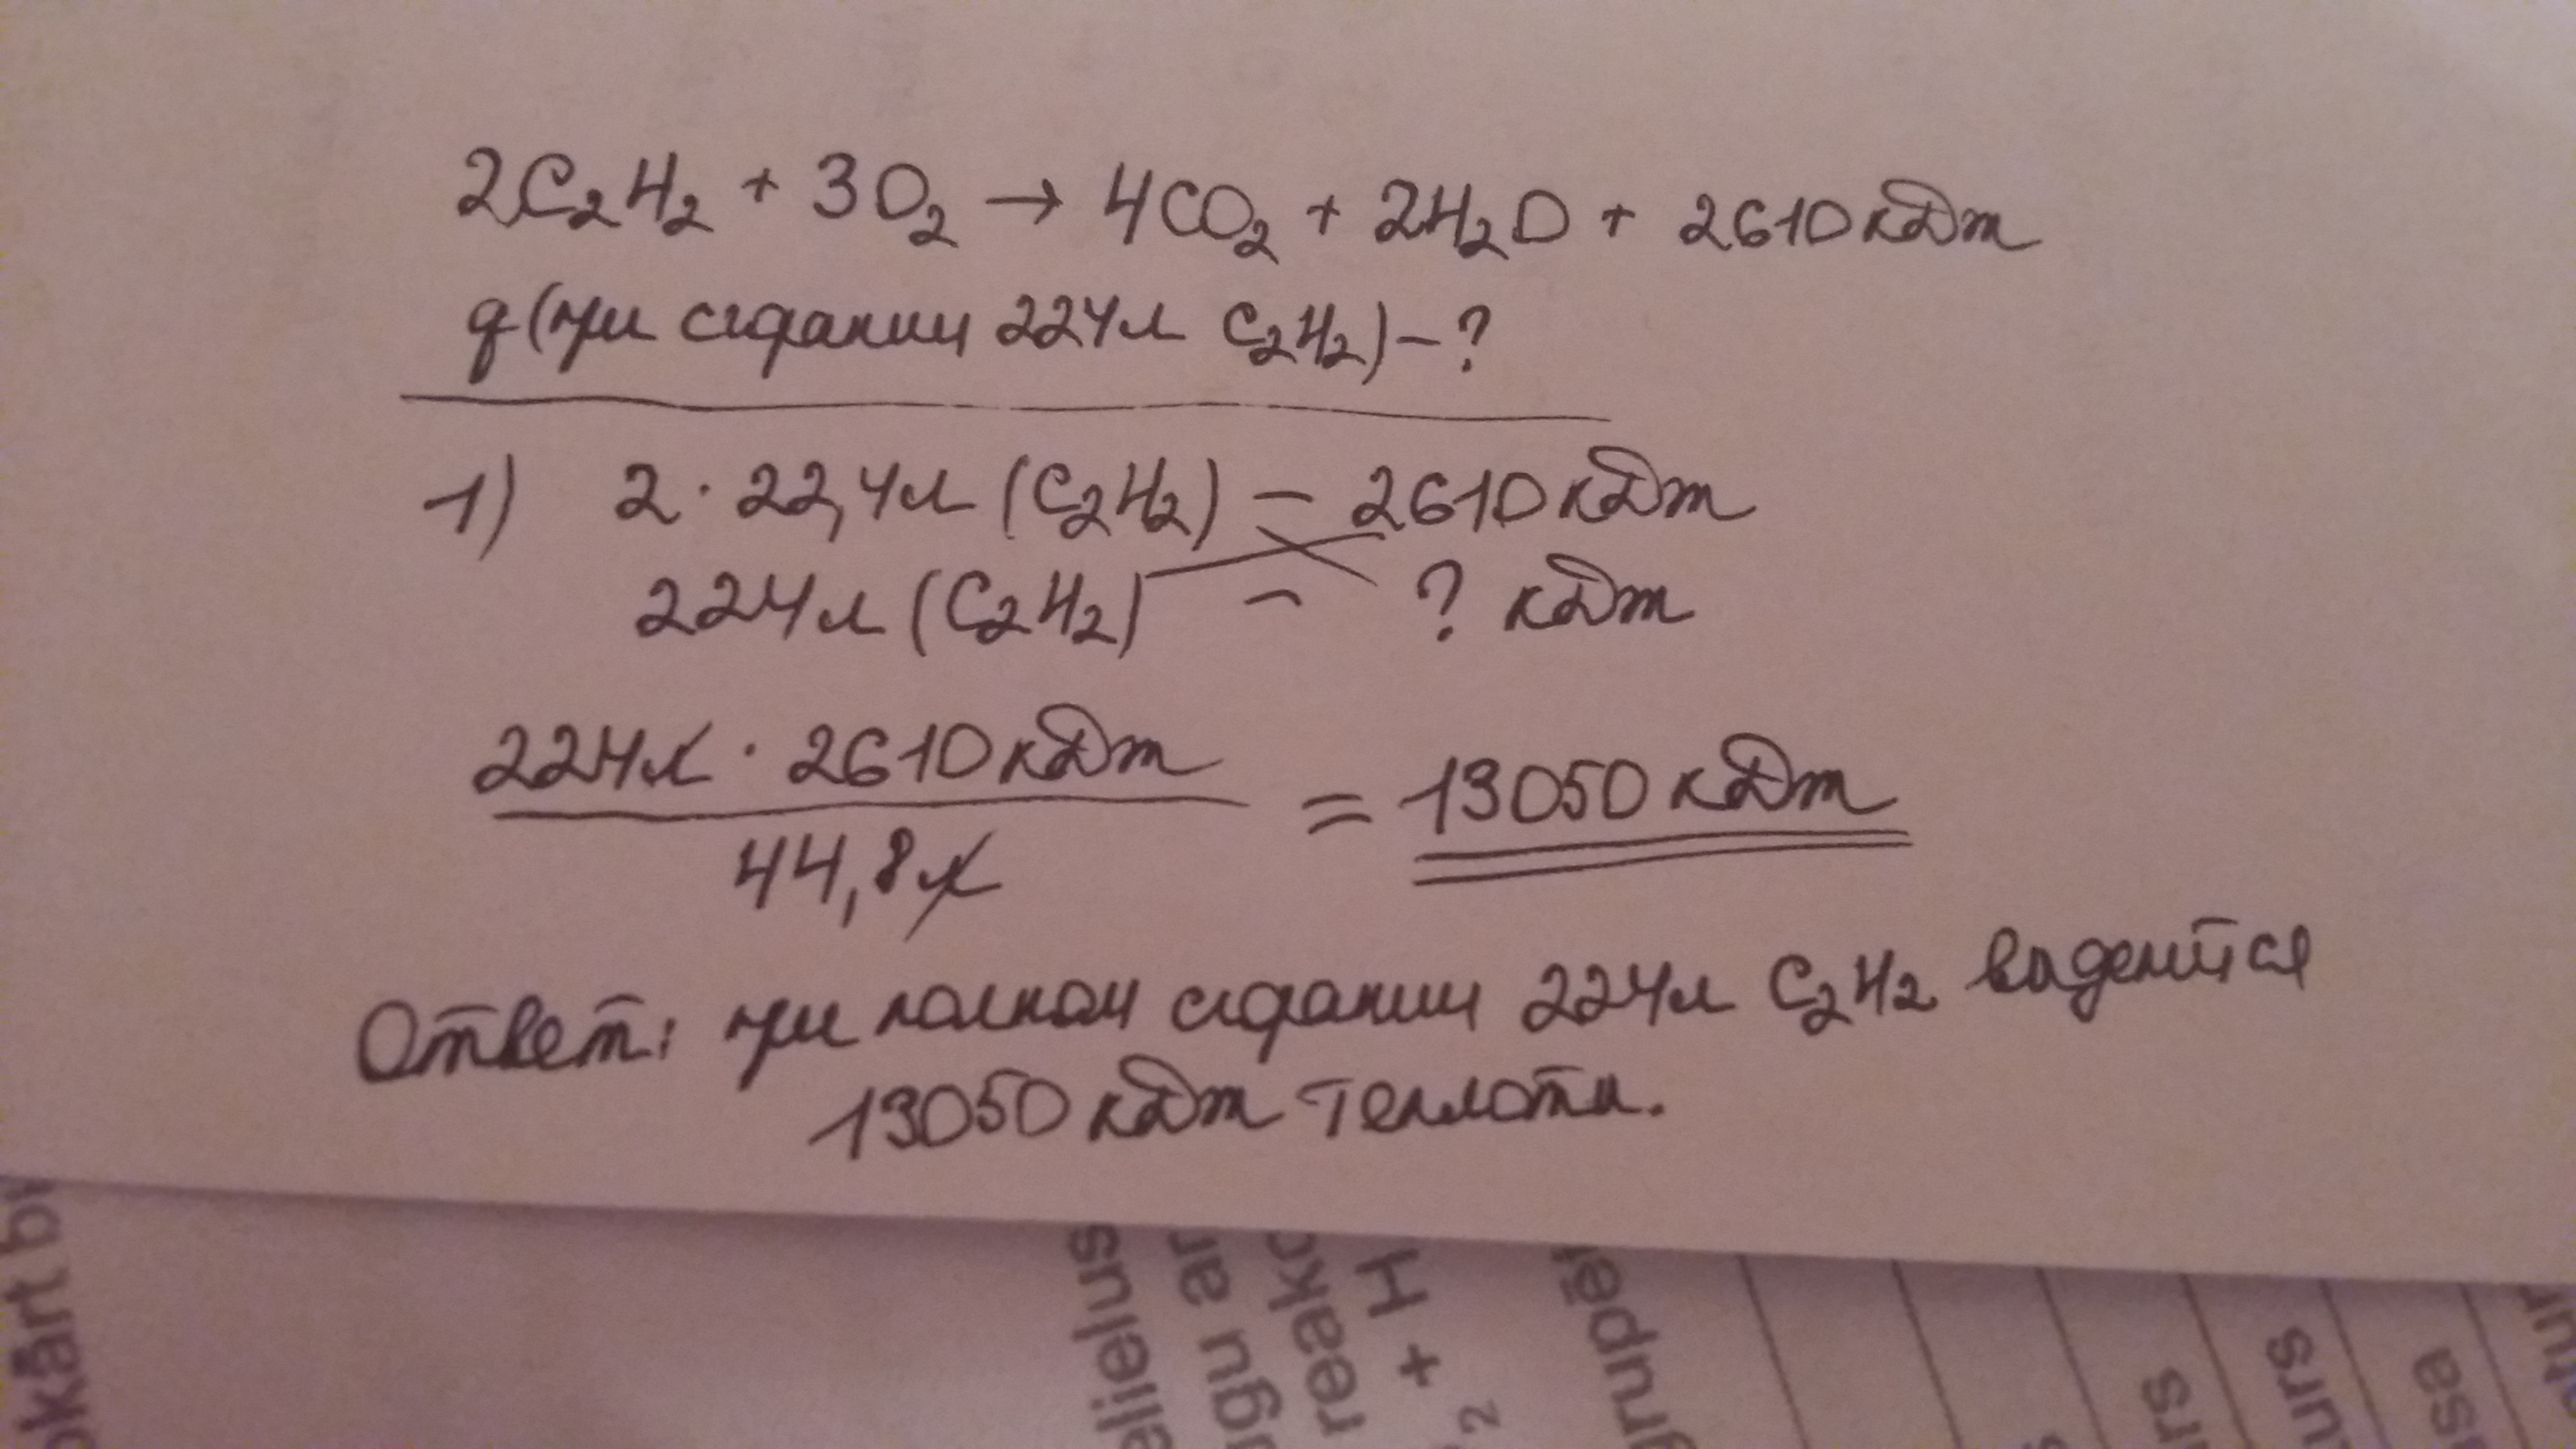 2C₂H₂ + 3O₂ → 4CO₂ + 2H₂O + 2610 кДж
q (при сгорании 224 л C₂H₂) – ?
1) 2 · 22,4 л (C₂H₂) – 2610 кДж
224 л (C₂H₂) – ? кДж
224 л · 2610 кДж
44,8 л
= 13050 кДж
Ответ: при полном сгорании 224 л C₂H₂ выделится
13050 кДж теплоты.
okārt
reakc
H
+
2
grupēj
urs
rs